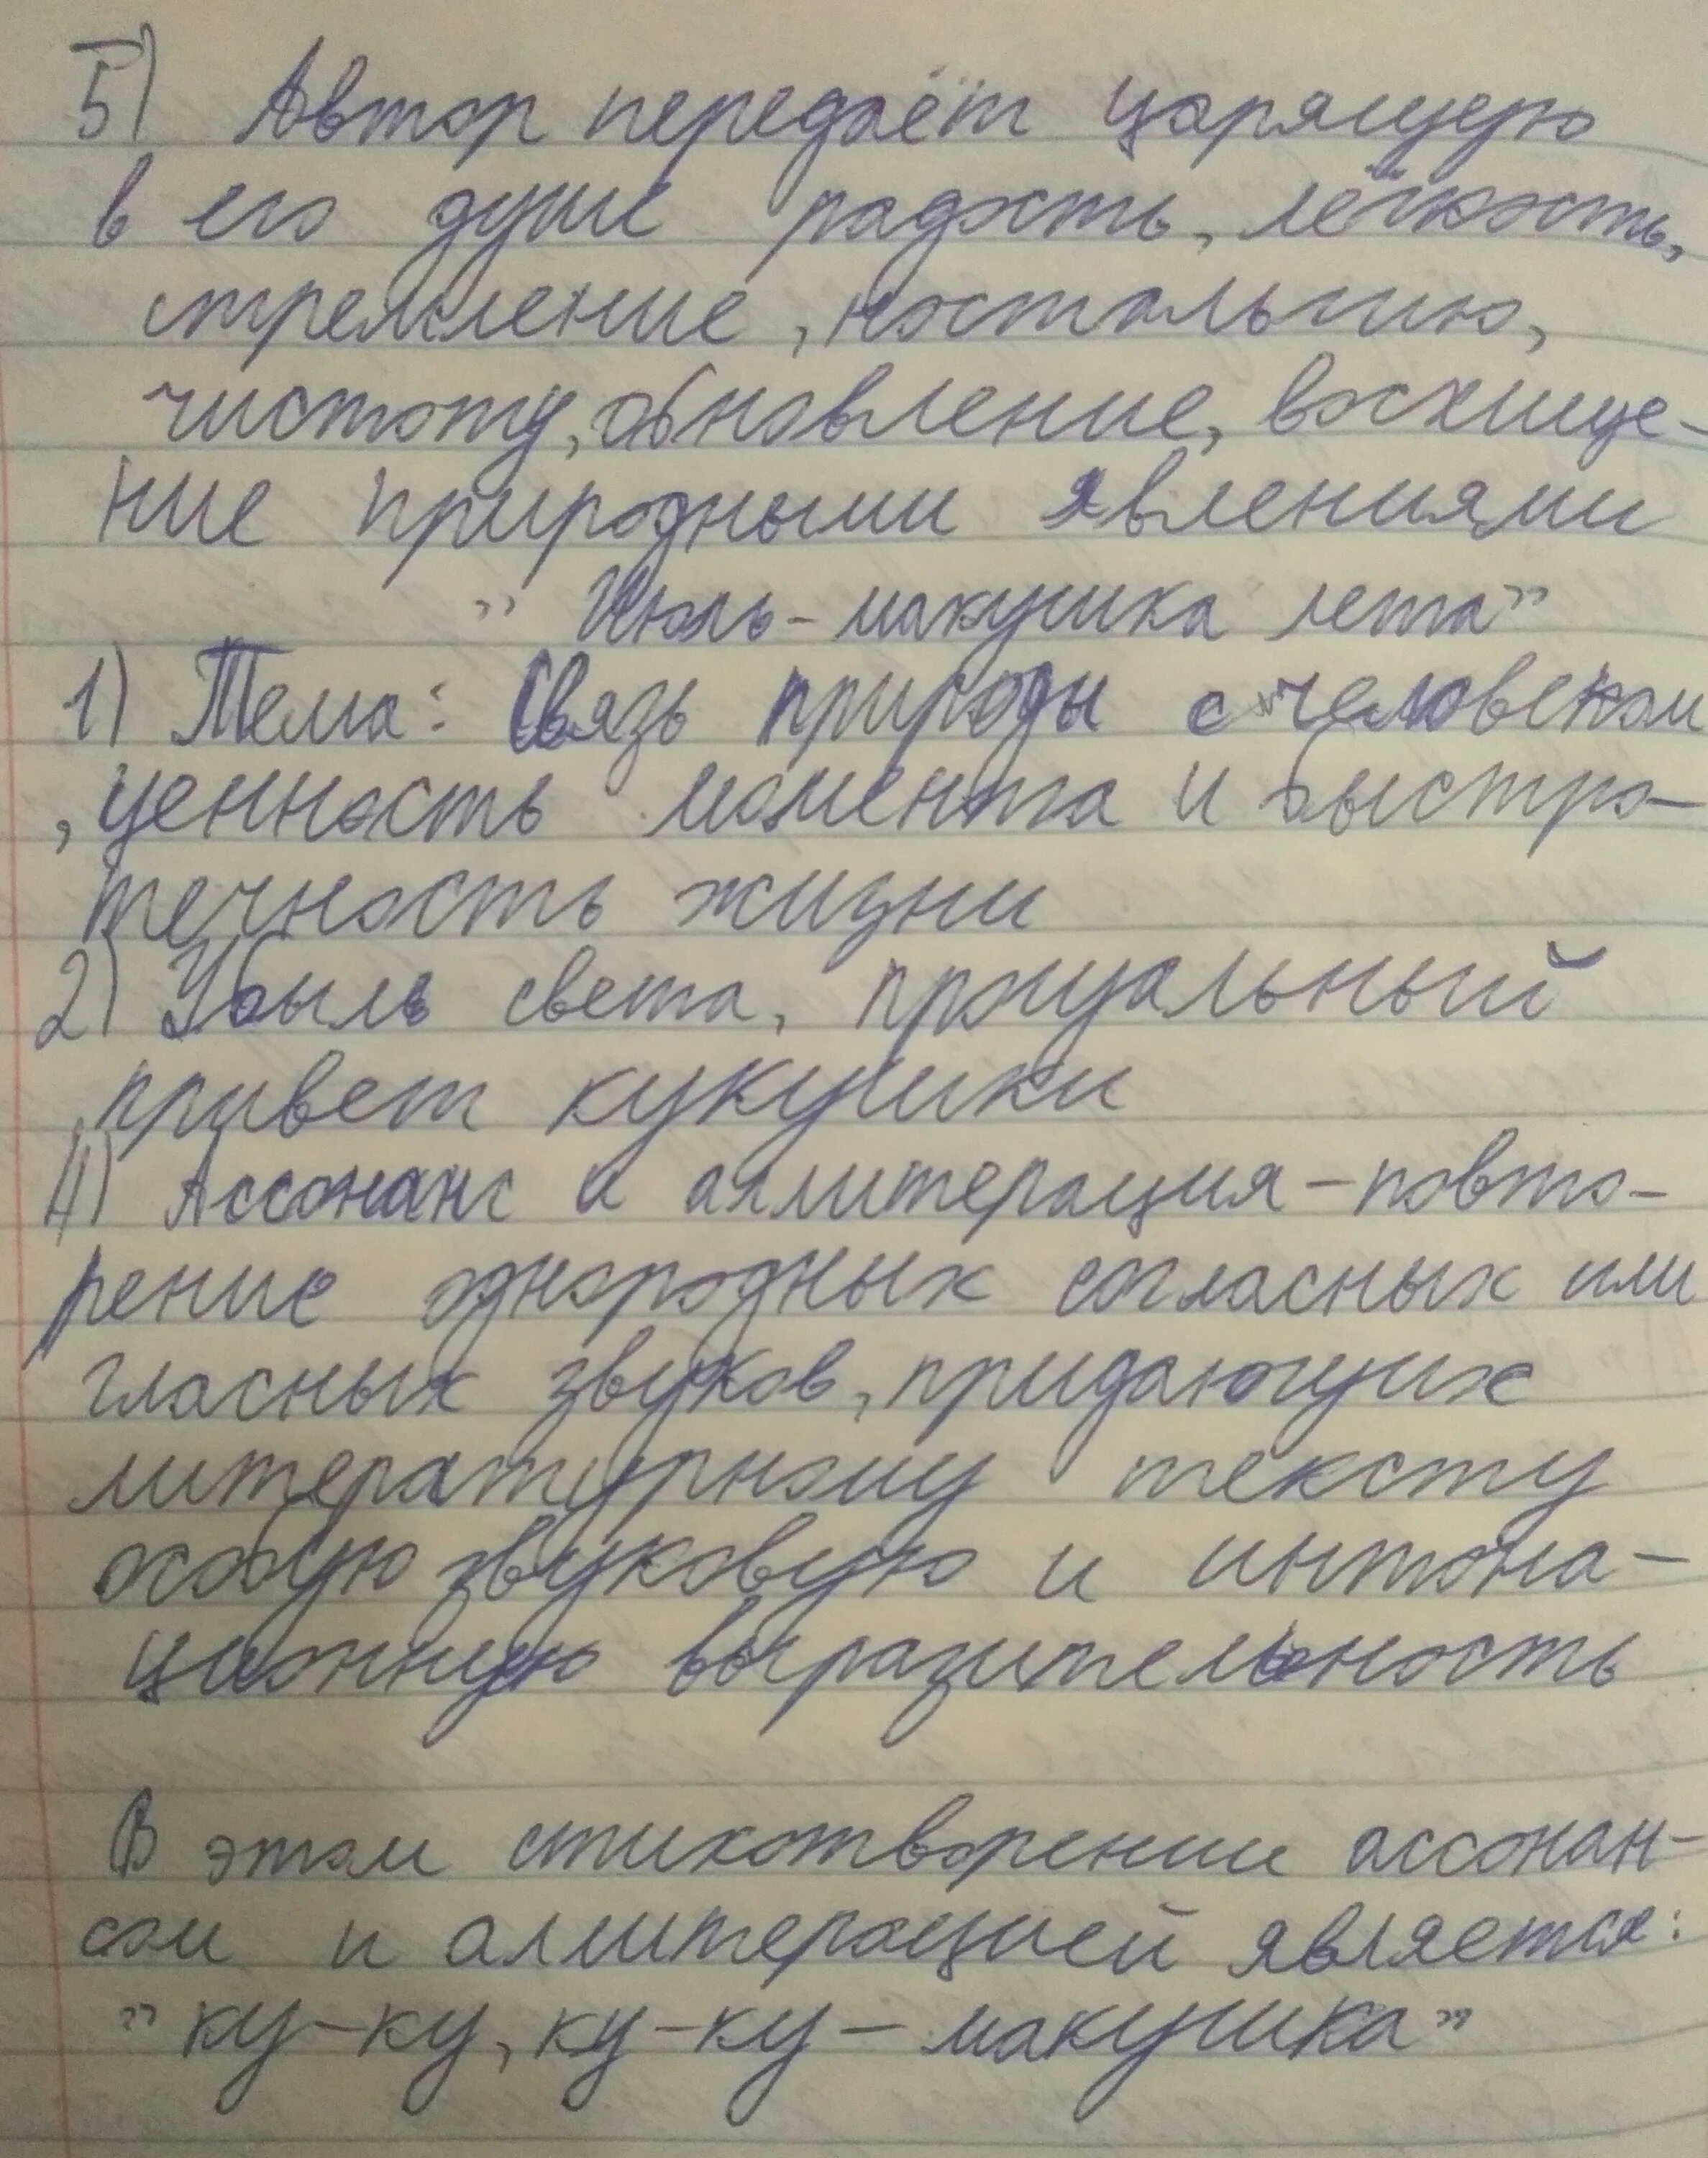 5) Автор передаёт царящую
в его душе радость, лёгкость,
стремление, ностальгию,
чистоту, обновление, восхище-
ние природными явлениями
" Июль - макушка лета"
1) Тема: Связь природы с человеком
, ценность момента и быстро-
течность жизни
2) Убыль света, прощальный
привет кукушки
4) Ассонанс и аллитерация - повто-
рение однородных согласных или
гласных звуков, придающих
литературному тексту
особую звуковую и интона-
ционную выразительность
В этом стихотворении ассонан-
сом и алитерацией является:
" ку-ку, ку-ку - макушка"